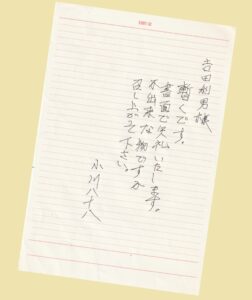 吉田利男様
暫くです。
書面で失礼いたします。
不出来な物ですが
召し上がって下さい。
小川八十八